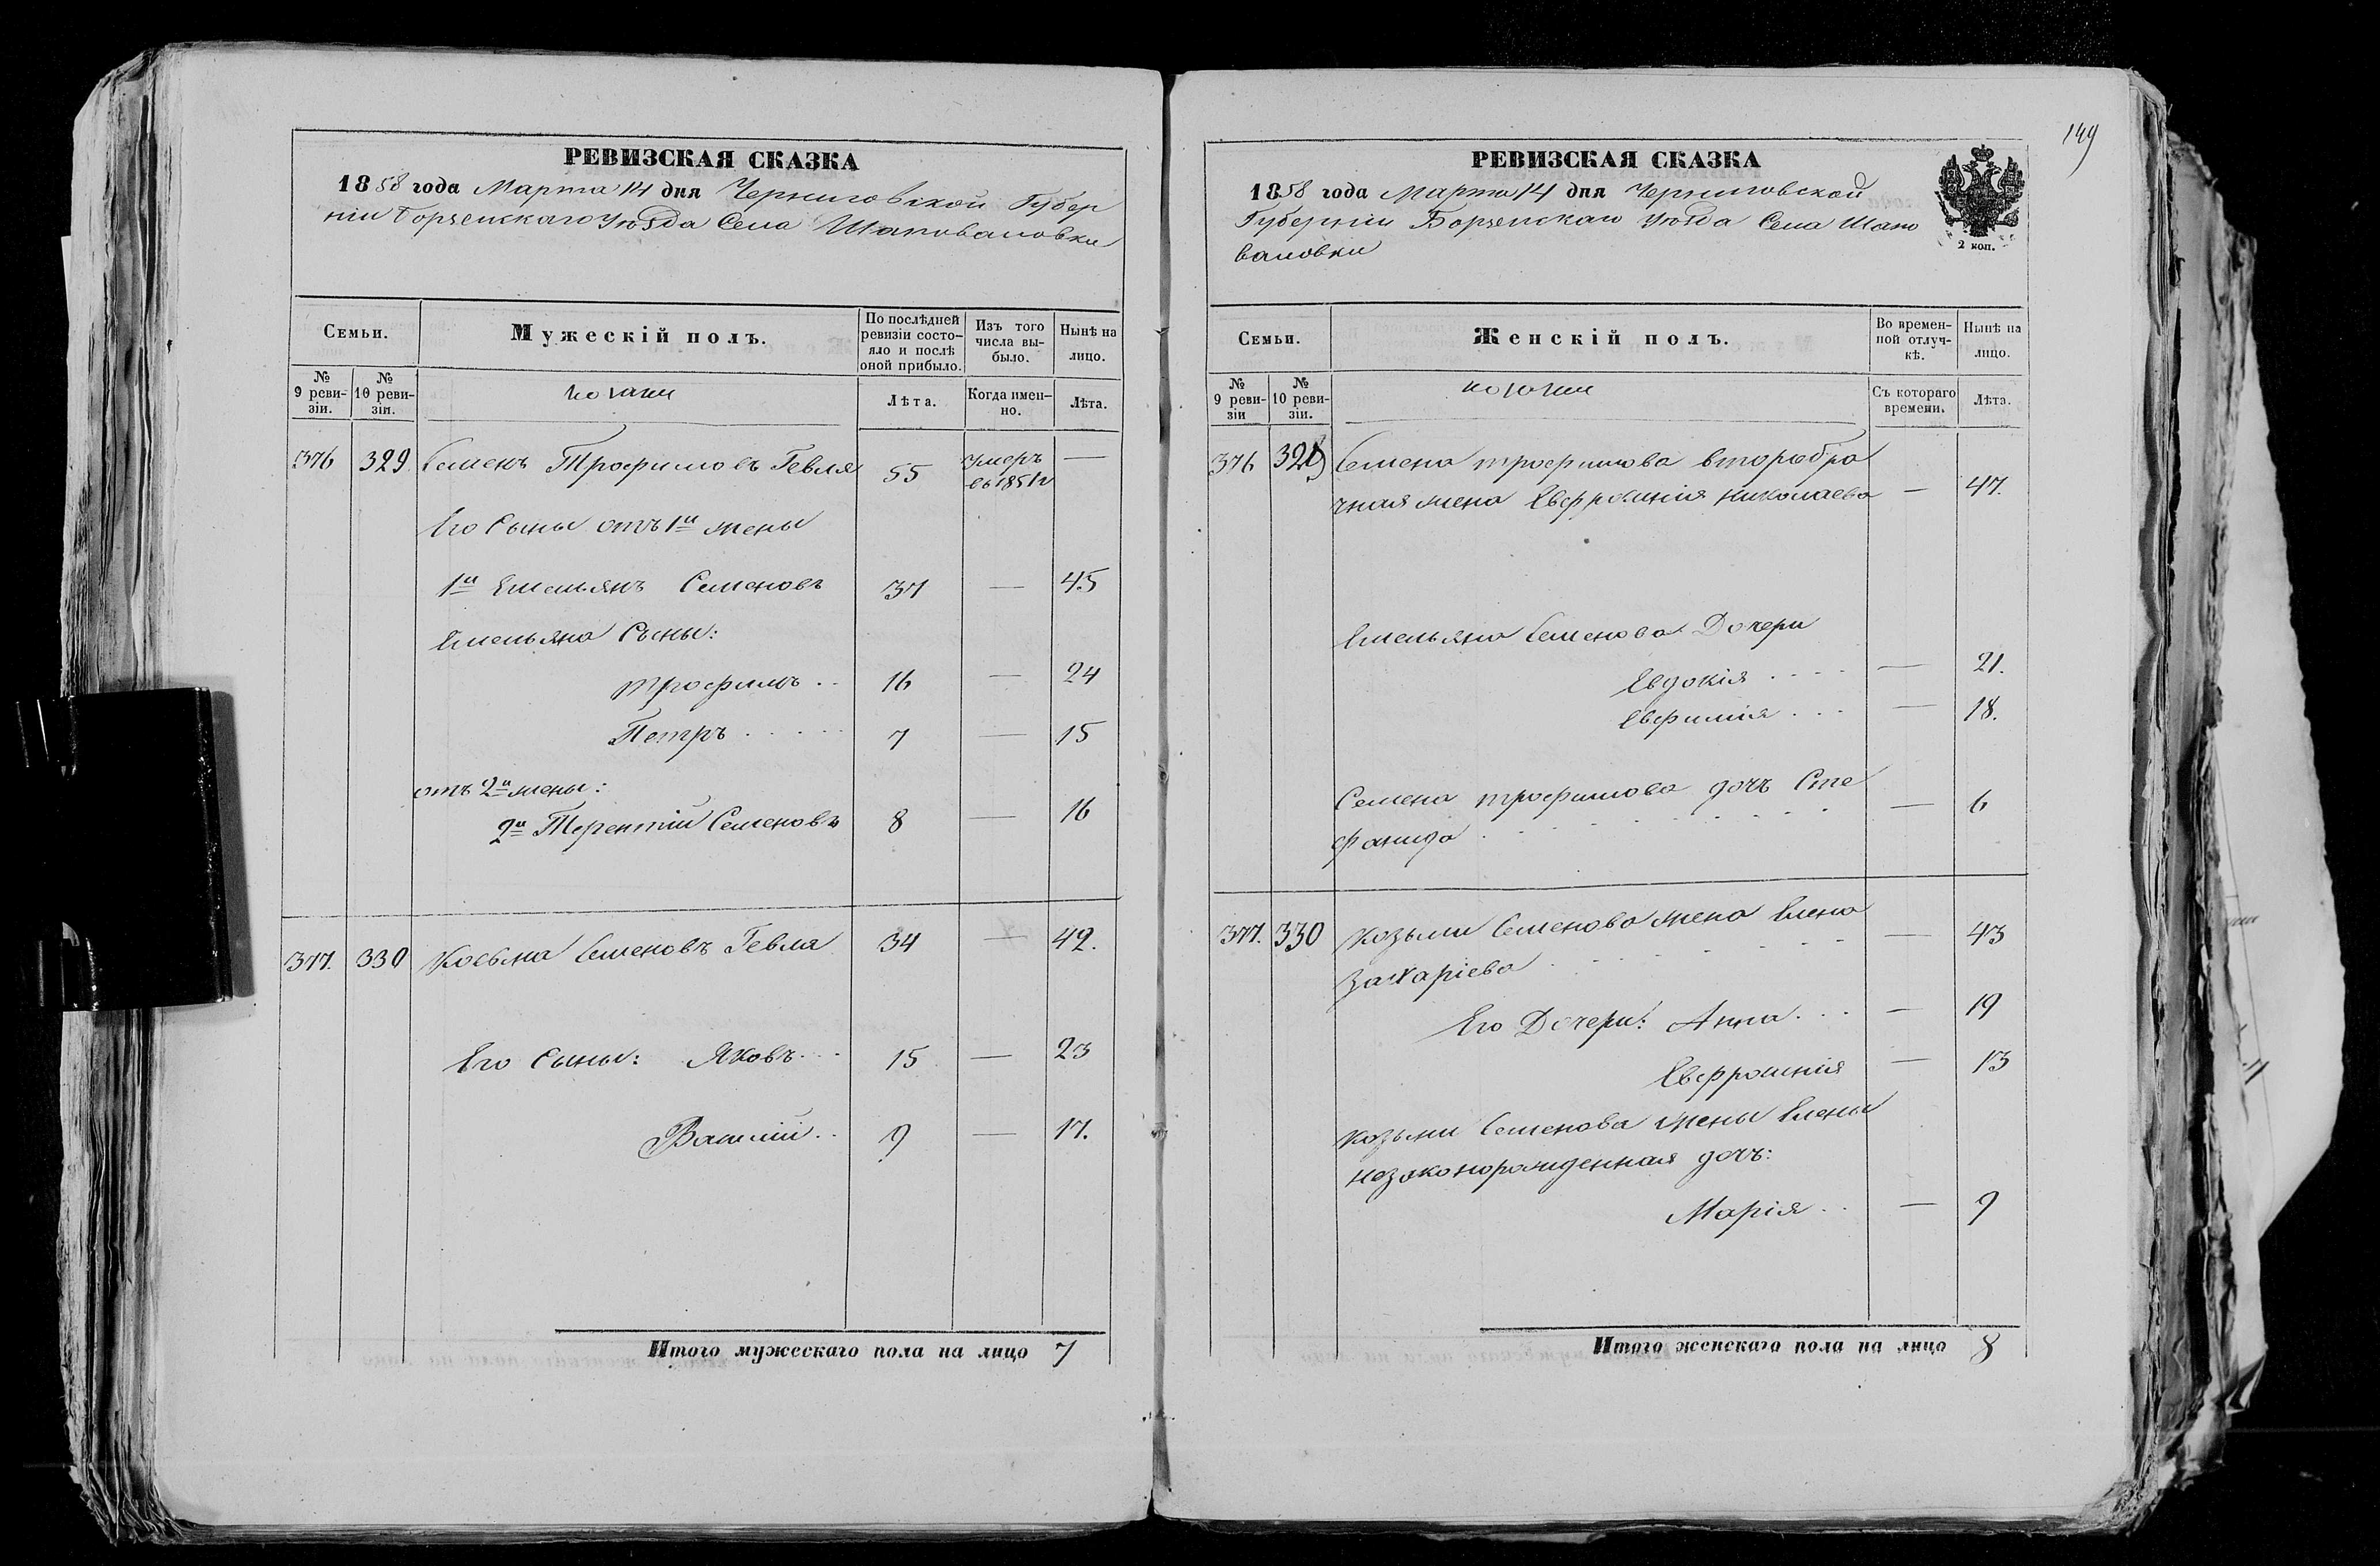 РЕВИЗСКАЯ СКАЗКА
1858 года Марта 14 дня Черниговской Губер
ніи Борзенскаго Уѣзда Села Шаповаловки
Семьи.
Мужескій полъ.
По послѣдней ревизіи состояло и послѣ оной прибыло.
Изъ того числа выбыло.
Нынѣ на лицо.
№ 9 ревизіи.
№ 10 ревизіи.
козаки
Лѣта.
Когда именно.
Лѣта.
376 329 Семенъ Трофимовъ Гевля 55 умеръ въ 1851 г —
Его Сыны отъ 1й жены
1й Емельянъ Семеновъ 37 — 45
Емельяна Сыны:
Трофимъ .. 16 — 24
Петръ ..... 7 — 15
отъ 2й жены:
2й Терентій Семеновъ 8 — 16
377. 330 Косьма Семеновъ Гевля 34 — 42.
Его Сыны: Яковъ... 15 — 23
Василій.. 9 — 17.
Итого мужескаго пола на лицо 7
149
РЕВИЗСКАЯ СКАЗКА
1858 года Марта 14 дня Черниговской
Губерніи Борзенскаго Уѣзда Села Шапо
валовки
2 коп.
Семьи.
Женскій полъ.
Во временной отлучкѣ.
Нынѣ на лицо.
№ 9 ревизіи
№ 10 ревизіи.
козачки
Съ котораго времени.
Лѣта.
376 329 Семена Трофимова второбра
чная жена Евфросинія Николаева — 47.
Емельяна Семенова Дочери
Евдокія .... — 21.
Евфимія ... — 18.
Семена Трофимова дочь Сте
фанида — 6
377. 330 Козьмы Семенова жена Елена
Захаріева — 43
Его Дочери: Анна... — 19
Евфросинія — 13
Козьмы Семенова жены Елены
незаконорожденная дочь:
Марія .. — 9
Итого женскаго пола на лицо 8